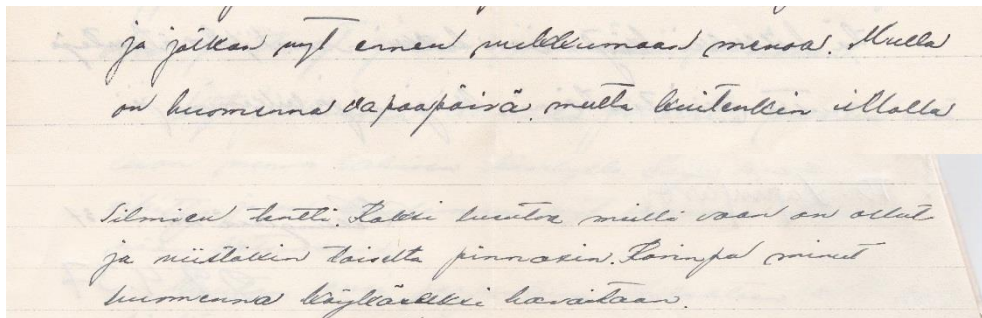 ja jatkan nyt ennen nukkumaan menoa. Mulla
on huomenna vapaapäivä, mutta kuitenkin illalla
Silmien tentti. Kaksi tuntia meillä vaan on ollut
ja niistäkin toiselta pinnasin. Kaninpa minut
huomenna havaitaan.